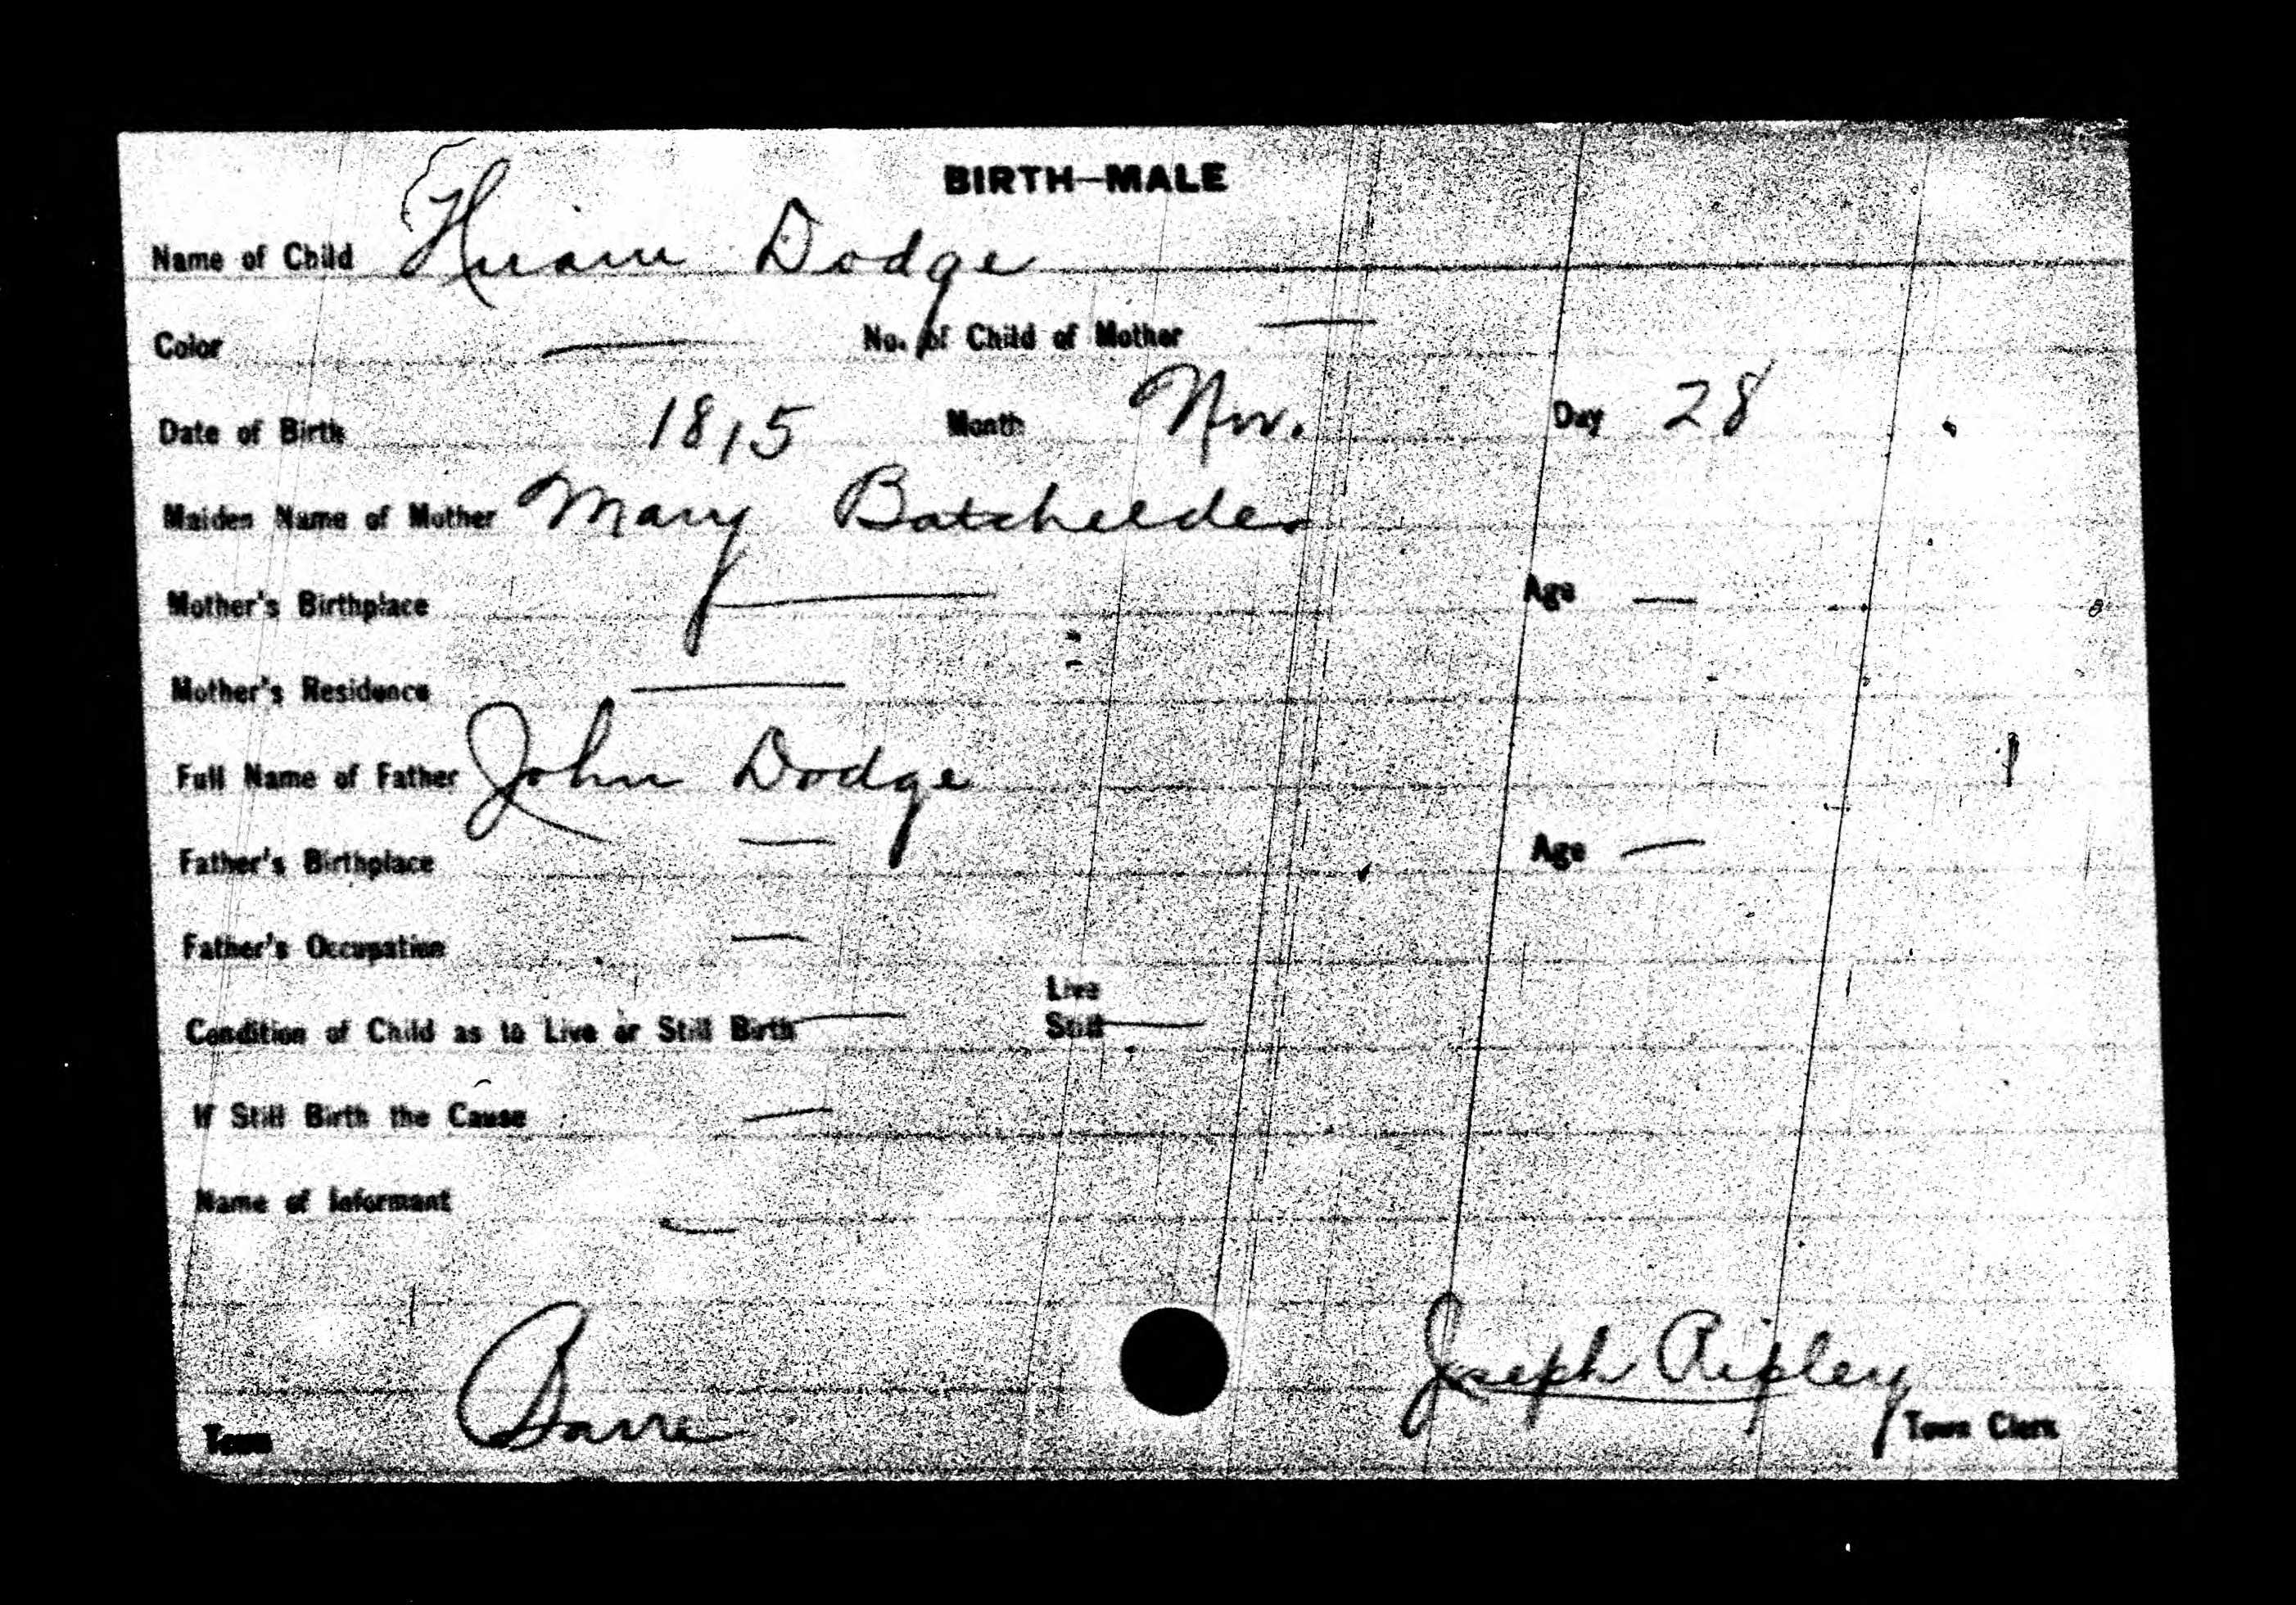 BIRTH—MALE
Name of Child Hiram Dodge
Color — No. of Child of Mother —
Date of Birth 1815 Month Nov. Day 28
Maiden Name of Mother Mary Batchelder
Mother's Birthplace — Age —
Mother's Residence —
Full Name of Father John Dodge
Father's Birthplace — Age —
Father's Occupation —
Live
Condition of Child as to Live or Still Birth — Still —
If Still Birth the Cause —
Name of Informant —
Joseph Ripley
Town Barre Town Clerk